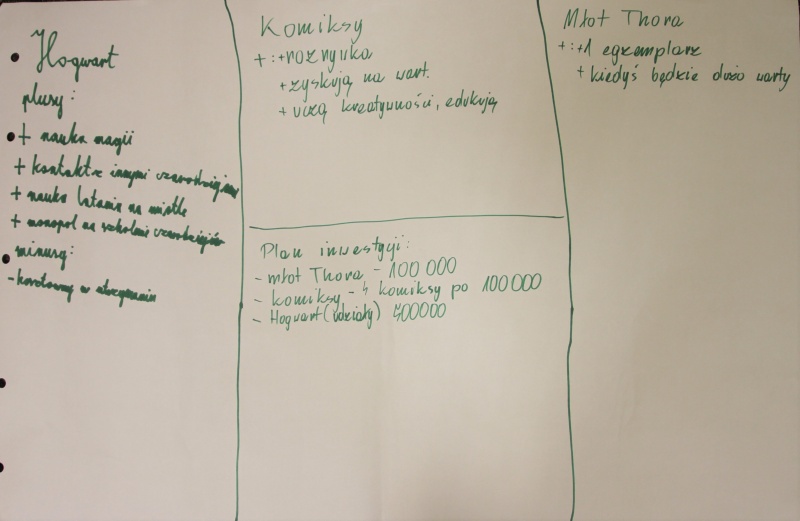 Hogwart
plusy:
+ nauka magii
+ kontakt z innymi czarodziejami
+ nauka latania na miotle
+ monopol na szkolenie czarodziejów
minusy:
- kosztowny w utrzymaniu
Komiksy
+:+rozrywka
+zyskują na wart.
+ uczą kreatywności, edukują
Plan inwestycji:
- młot Thora - 100 000
- komiksy - 4 komiksy po 100000
- Hogwart (udziały) 500000
Młot Thora
+:+1 egzemplarz
+ kiedyś będzie dużo warty